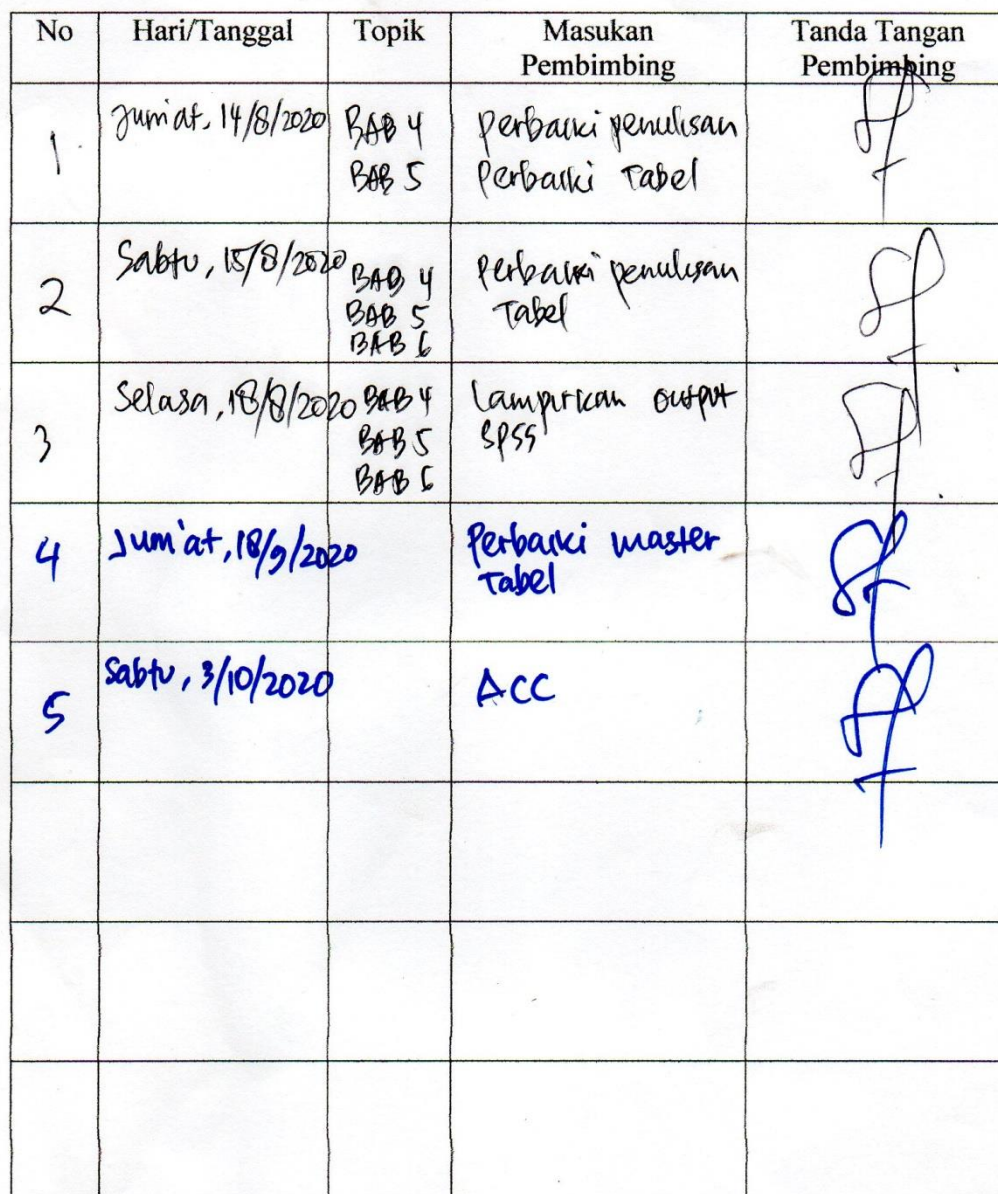 No Hari/Tanggal Topik Masukan Pembimbing Tanda Tangan Pembimbing
1. Jum'at, 14/8/2020 BAB 4 Perbaiki penulisan
BAB 5 Perbaiki Tabel
2 Sabtu, 15/8/2020 BAB 4 Perbaiki penulisan
BAB 5 Tabel
BAB 6
3 Selasa, 18/8/2020 BAB 4 Lampirkan output
BAB 5 SPSS
BAB 6
4 Jum'at, 18/9/2020 Perbaiki master
Tabel
5 Sabtu, 3/10/2020 ACC